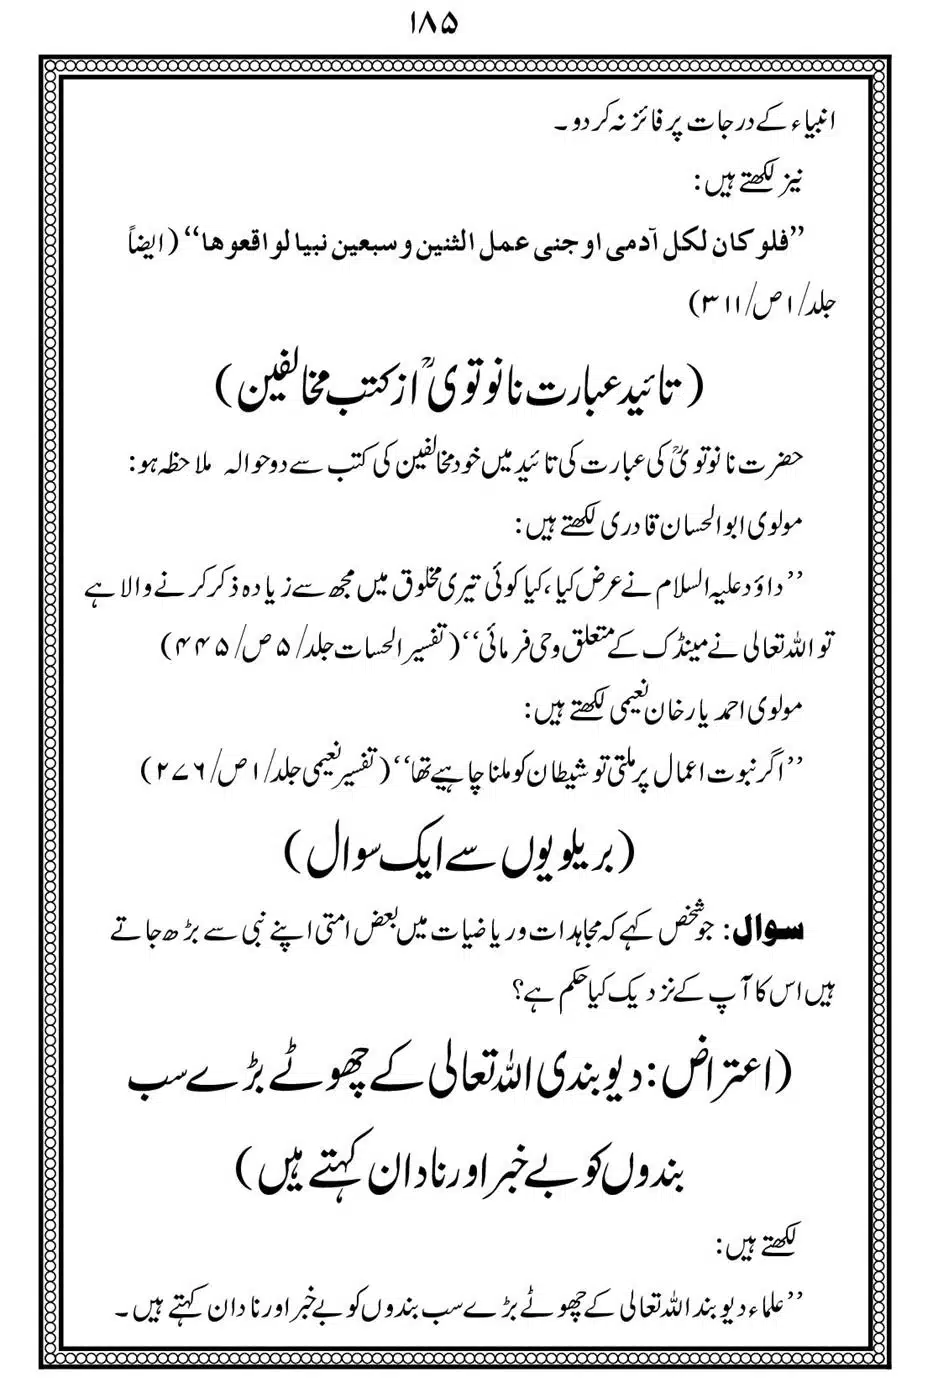 ۱۸۵
انبیاء کے درجات پر فائز نہ کر دو ۔
نیز لکھتے ہیں:
’’فلو کان لکل آدمی او جنی عمل الثنین و سبعین نبیا لو اقعوها‘‘ (ایضاً
جلد/۱ص/۳۱۱)
(تائید عبارت نانوتویؒ از کتب مخالفین)
حضرت نانوتویؒ کی عبارت کی تائید میں خود مخالفین کی کتب سے دو حوالہ ملاحظہ ہو:
مولوی ابوالحسان قادری لکھتے ہیں:
’’داؤد علیہ السلام نے عرض کیا، کیا کوئی تیری مخلوق میں مجھ سے زیادہ ذکر کرنے والا ہے
تو اللہ تعالی نے مینڈک کے متعلق وحی فرمائی‘‘ (تفسیر الحسات جلد/۵ص/۴۴۵)
مولوی احمد یار خان نعیمی لکھتے ہیں:
’’اگر نبوت اعمال پر ملتی تو شیطان کو ملنا چاہیے تھا‘‘ (تفسیر نعیمی جلد/۱ص/۲۷۶)
(بریلویوں سے ایک سوال)
سوال: جو شخص کہے کہ مجاہدات وریاضیات میں بعض امتی اپنے نبی سے بڑھ جاتے
ہیں اس کا آپ کے نزدیک کیا حکم ہے؟
(اعتراض: دیوبندی اللہ تعالی کے چھوٹے بڑے سب
بندوں کو بے خبر اور نادان کہتے ہیں)
لکھتے ہیں:
’’علماء دیوبند اللہ تعالی کے چھوٹے بڑے سب بندوں کو بے خبر اور نادان کہتے ہیں۔